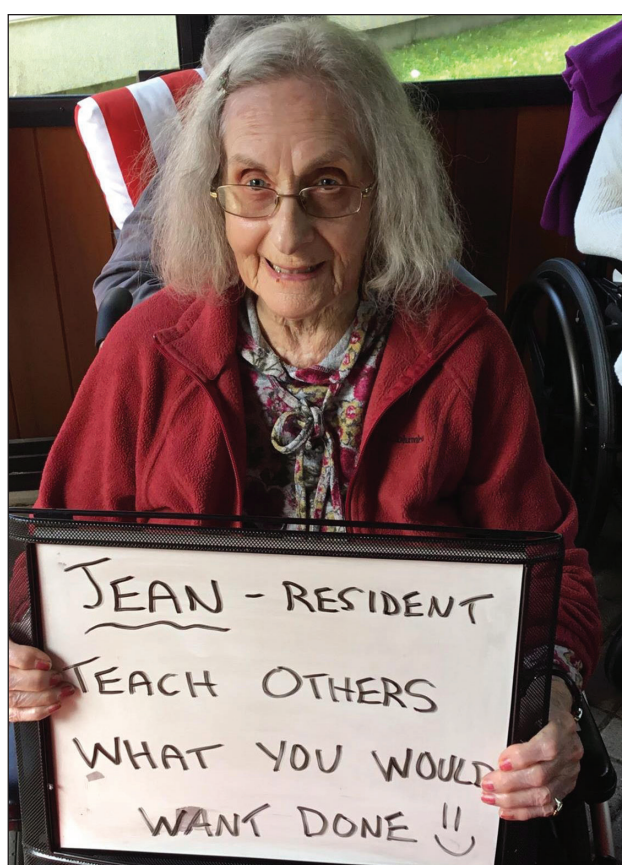 JEAN - RESIDENT
TEACH OTHERS
WHAT YOU WOULD
WANT DONE